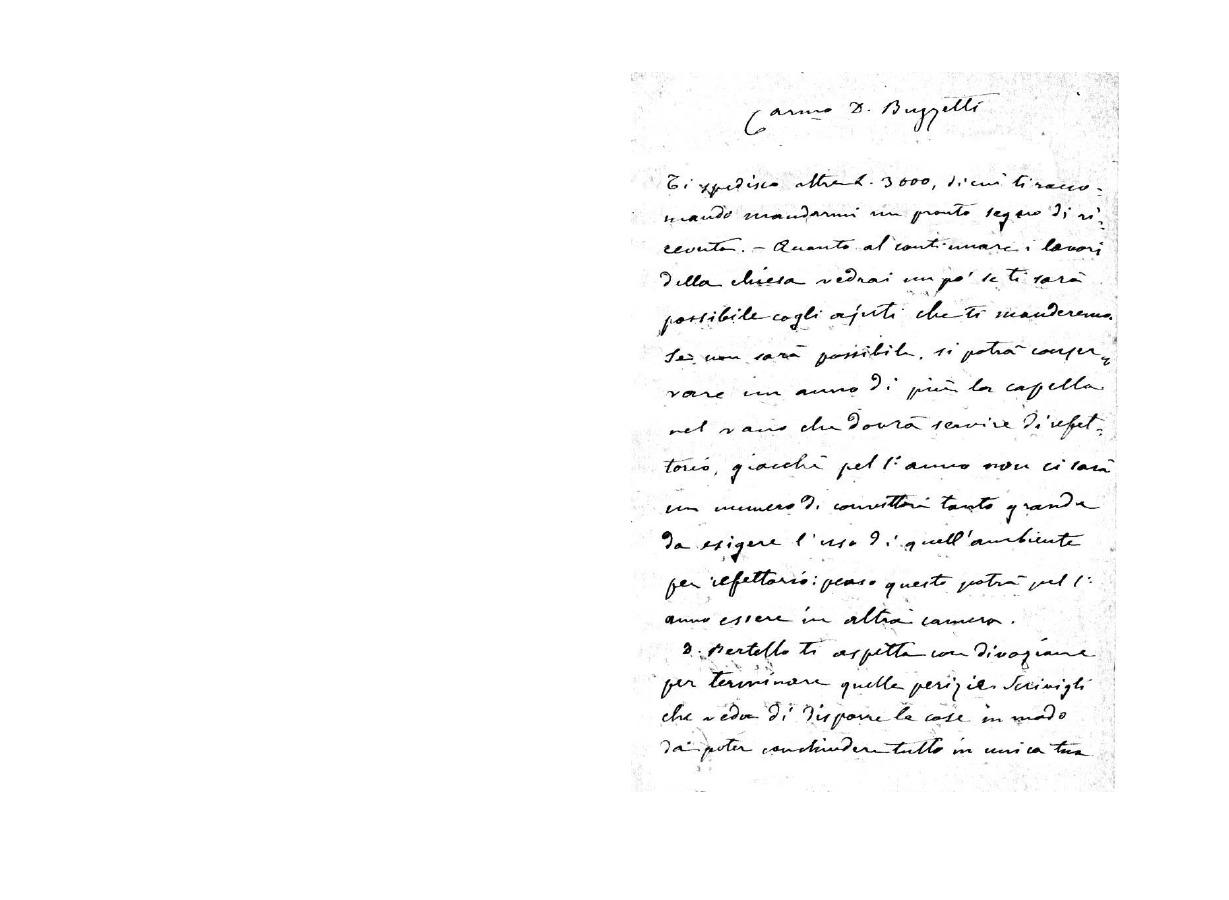 Carmo D. Buzzetti
Ti spedisco altre L. 3000, di cui ti racco-
mando mandarmi un pronto segno di ri-
cevuta. – Quanto al continuare i lavori
della chiesa vedrai un po' se ti sarà
possibile cogli ajuti che ti manderemo.
Se non sarà possibile, si potrà conser-
vare un anno di più la capella
nel vano che dovrà servire di refet-
torio, giacchè pel 1° anno non ci sarà
un numero di convittori tanto grande
da esigere l'uso di quell'ambiente
per refettorio: penso questo potrà pel 1°
anno essere in altra camera.
D. Bertello ti aspetta con divozione
per terminare quelle perizie. Scrivigli
che veda di disporre le cose in modo
da poter conchiudere tutto in unica tua